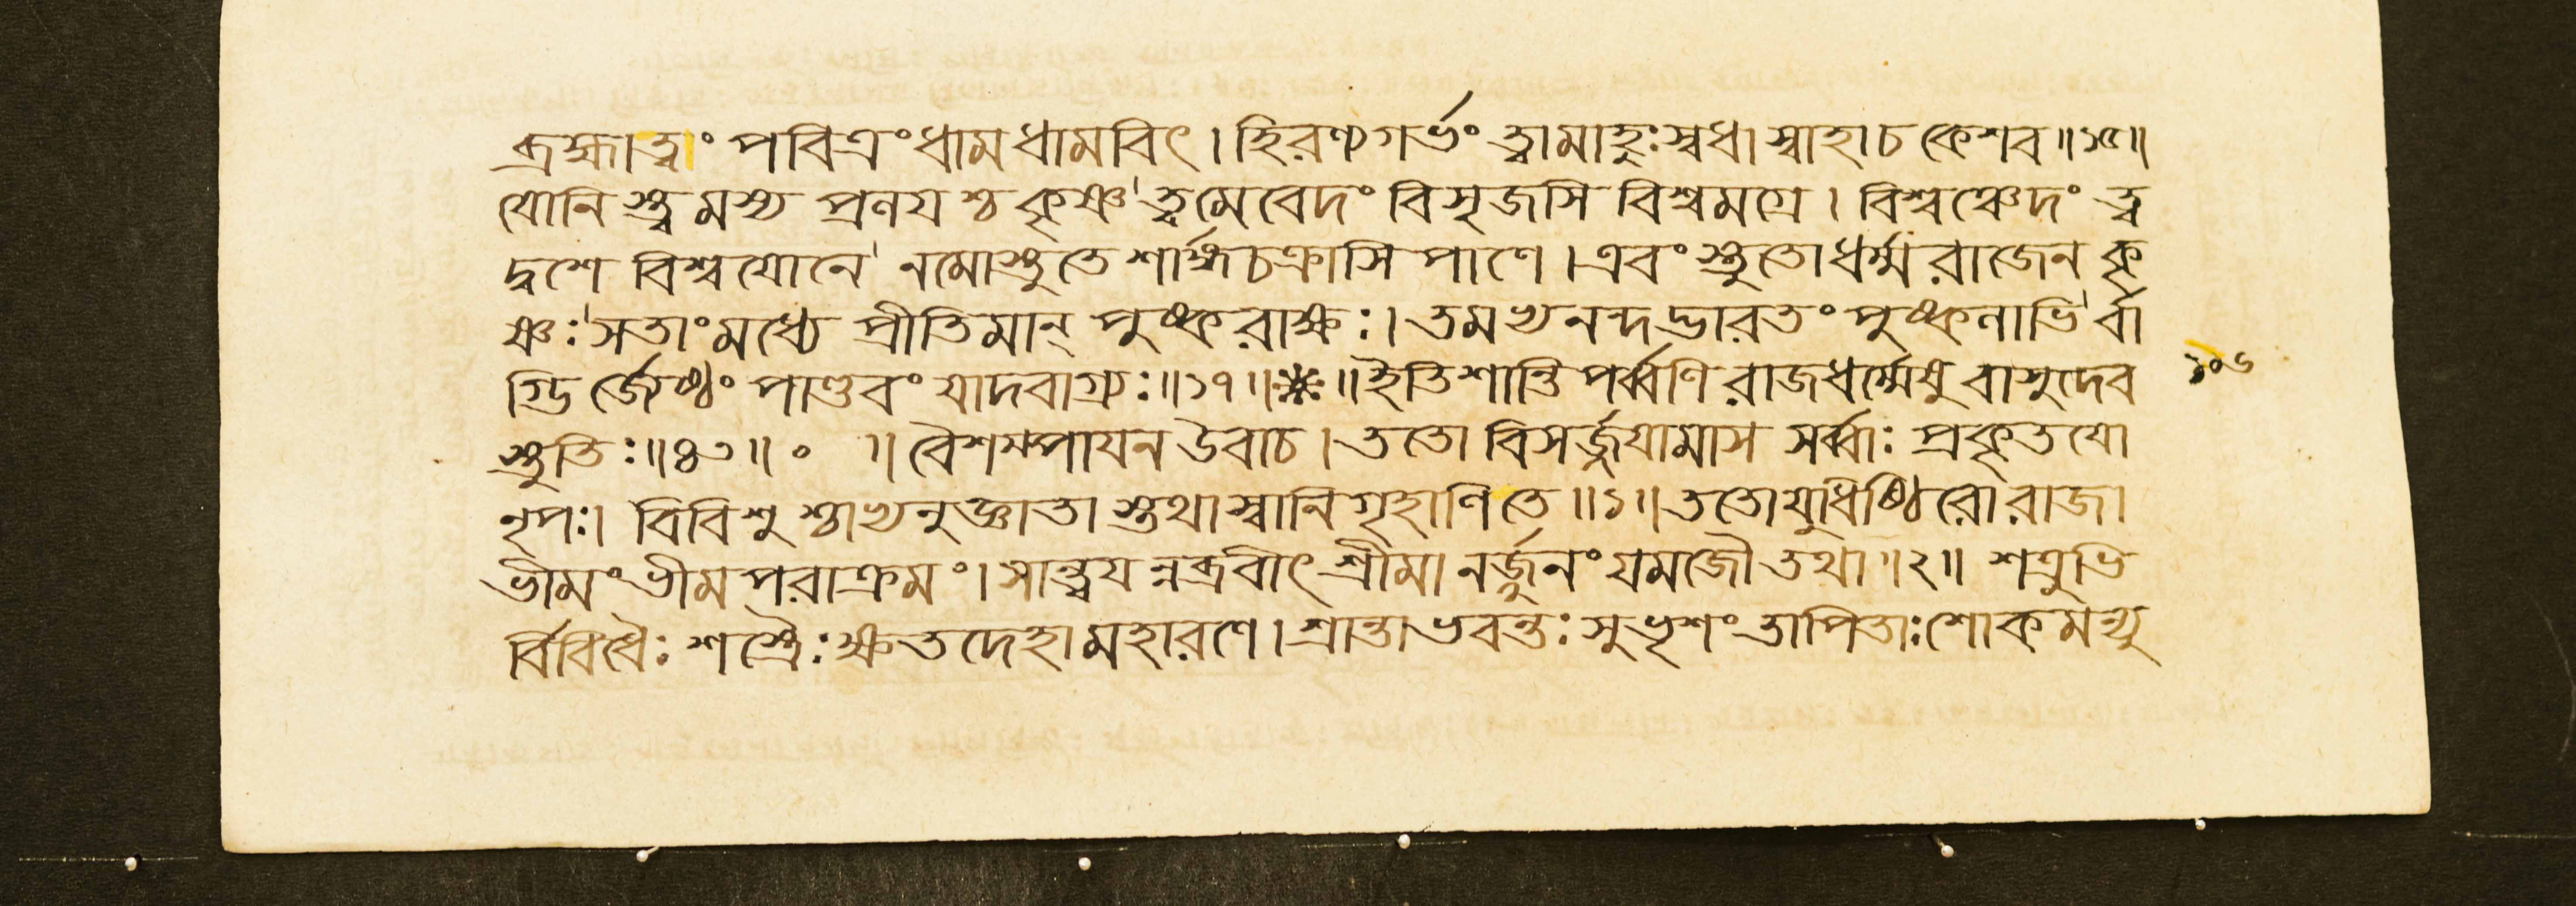 ব্রহ্মা ত্বাং পবিত্রং ধাম ধামবিৎ । হিরণ্যগর্ভং ত্বামাহুঃ স্বধা স্বাহা চ কেশব ॥১৫॥
যোনিস্ত্বমস্য প্রণযশ্চ কৃষ্ণ ত্বমেবেদং বিসৃজসি বিশ্বমগ্রে । বিশ্বঞ্চেদং ত্ব
দ্বশে বিশ্বযোনে নমোস্তুতে শার্ঙ্গচক্রাসিপাণে । এবং স্তুতো ধর্ম্মরাজেন কৃ
ষ্ণঃ সতাং মধ্যে প্রীতিমান্ পুষ্করাক্ষঃ । তমভ্যনন্দদ্ভারতং পুষ্কলাভির্বা
গ্ভির্জ্যেষ্ঠং পাণ্ডবং যাদবাগ্র্যঃ ॥১৭॥ * ॥ ইতি শান্তিপর্ব্বণি রাজধর্ম্মেষু বাসুদেব
১০৬
স্তুতিঃ ॥৪৩॥ ॰ ॥ বৈশম্পাযন উবাচ । ততো বিসর্জ্জযামাস সর্ব্বাঃ প্রকৃতযো
নৃপঃ । বিবিশুশ্চাভ্যনুজ্ঞাতা স্তথা স্বানি গৃহাণি তে ॥১॥ ততো যুধিষ্ঠিরো রাজা
ভীমং ভীমপরাক্রমং । সান্ত্বযন্নব্রবীৎ শ্রীমানর্জ্জুনং যমজৌ তথা ॥২॥ শত্রুভি
র্বিবিধৈঃ শস্ত্রৈঃ ক্ষতদেহা মহারণে । শ্রান্তা ভবন্তঃ সুভৃশং তাপিতাঃ শোকমন্যু